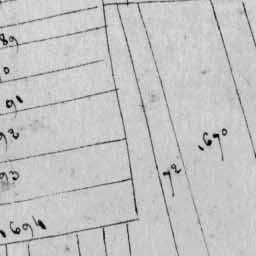 89
0
91
92
93
1694
92
1690